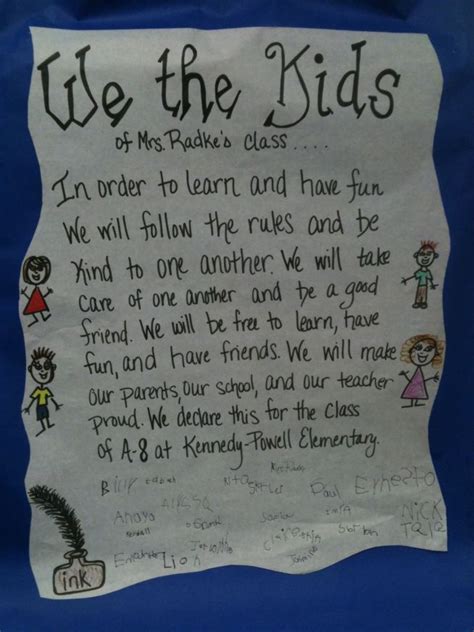 We the Kids
of Mrs. Radke's class....
In order to learn and have fun
We will follow the rules and be
Kind to one another. We will take
care of one another and be a good
friend. We will be free to learn, have
fun, and have friends. We will make
our parents, our school, and our teacher
proud. We declare this for the Class
of A-8 at Kennedy-Powell Elementary.
Billy
Paul Ernesto
Anaya Nick
Lion
ink